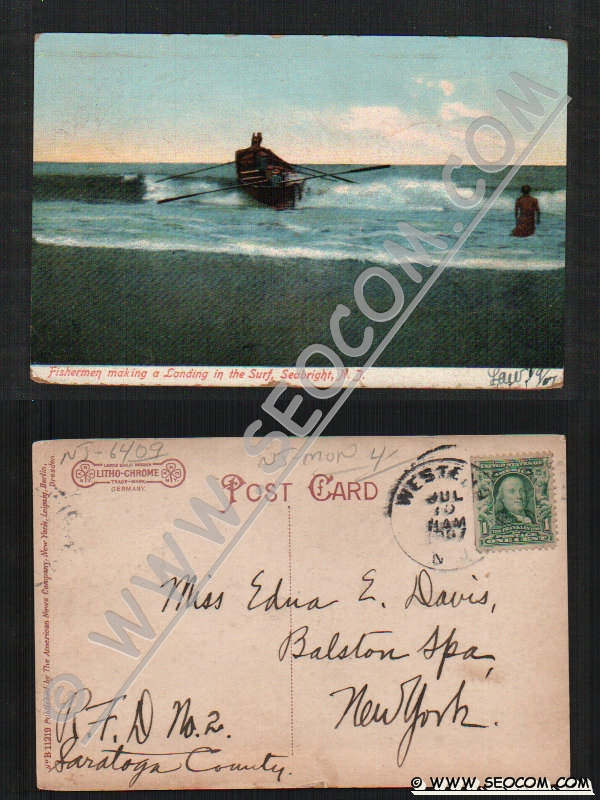 Fishermen making a Landing in the Surf, Seabright, N. J.
© WWW.SEOCOM.COM
NJ-6409
NJ-MON 4/
LITHO-CHROME
TRADE-MARK
GERMANY.
POST CARD
WESTE
JUL
10
11AM
1907
N
UNITED STATES
1 1
ONE CENT
Miss Edna E. Davis,
Balston Spa,
New York.
R.F.D No. 2.
Saratoga County.
B 11219 Published by The American News Company, New York, Leipzig, Berlin,
Dresden.
© WWW.SEOCOM.COM